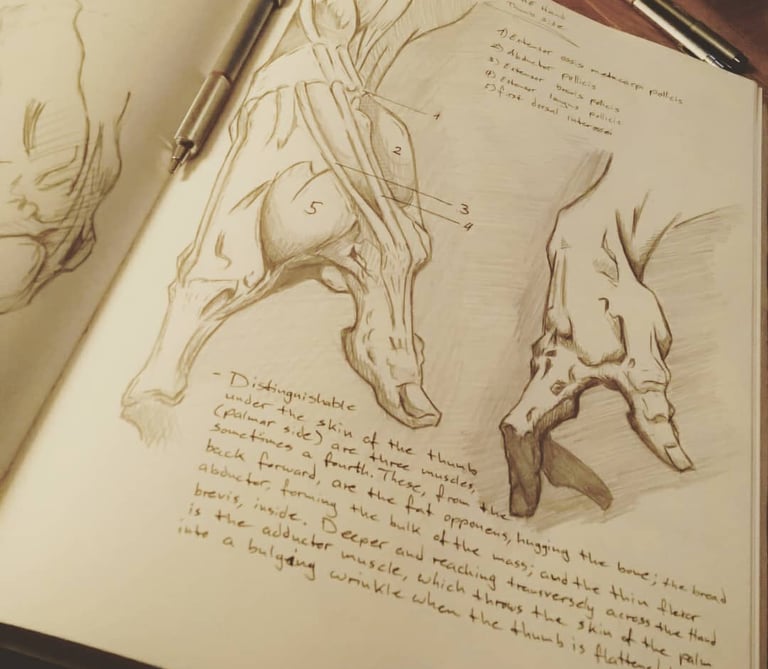 the Hand
Thumb side
1) Extensor ossis metacarp pollicis
2) Abductor pollicis
3) Extensor brevis pollicis
4) Extensor longus pollicis
5) first dorsal interossei
1
2
3
4
5
- Distinguishable
under the skin of the thumb
(palmar side) are three muscles,
sometimes a fourth. These, from the
back forward, are the fat opponens, hugging the bone; the broad
abductor, forming the bulk of the mass; and the thin flexor
brevis, inside. Deeper and reaching transversely across the Hand
is the adductor muscle, which throws the skin of the palm
into a bulging wrinkle when the thumb is flattened